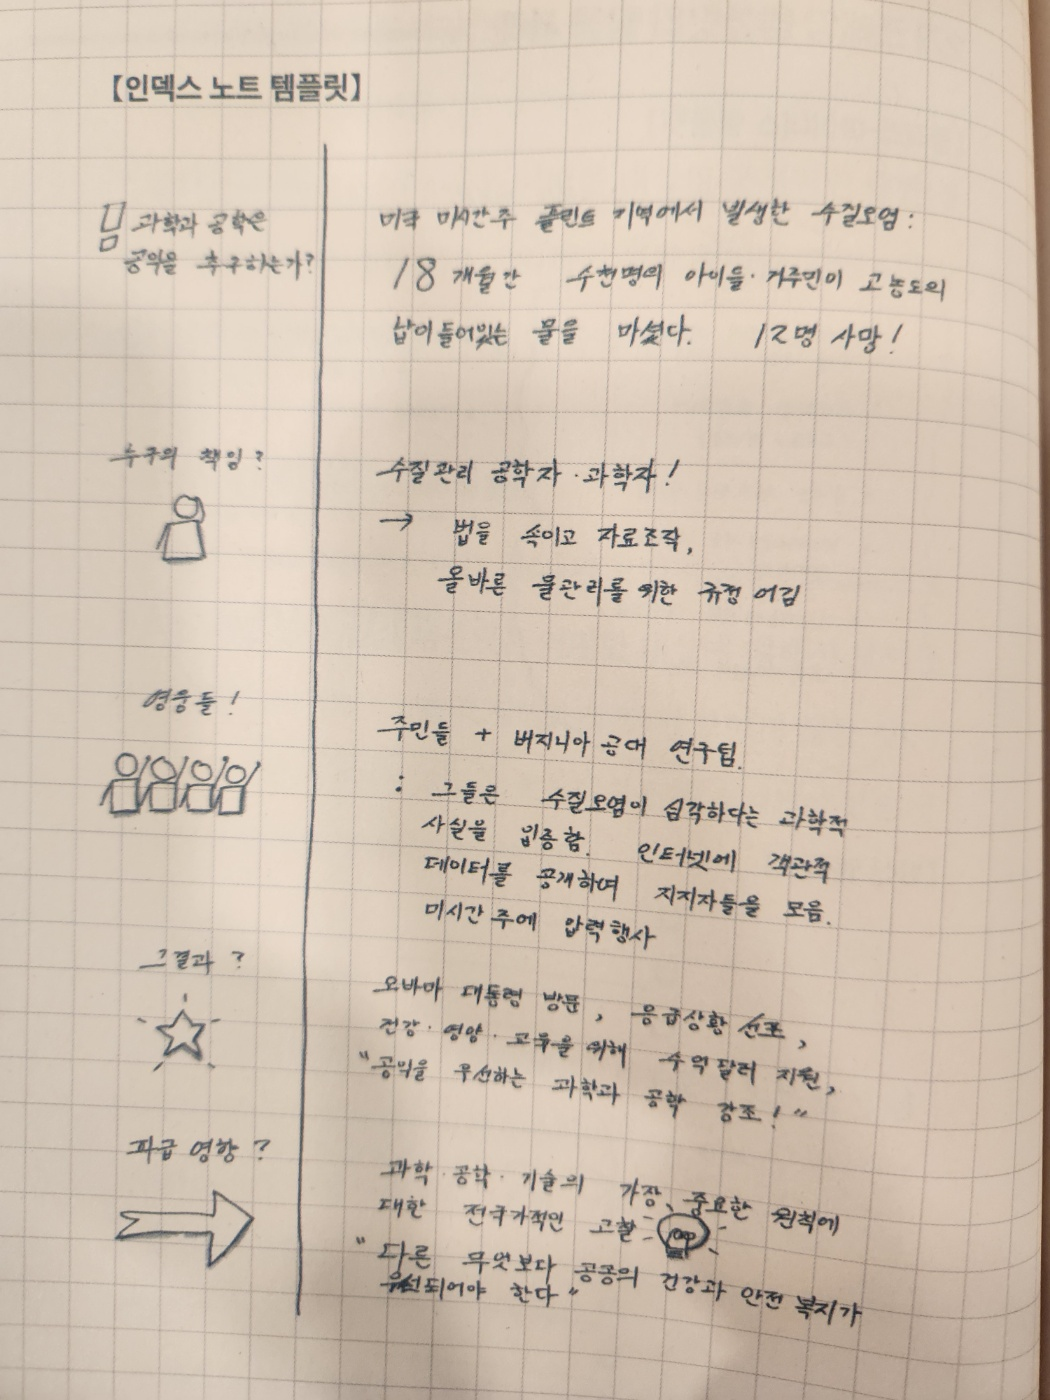 【인덱스 노트 템플릿】
과학과 공학은
공익을 추구하는가?
미국 미시간주 플린트 지역에서 발생한 수질오염:
18개월간 수천명의 아이들·거주민이 고농도의
납이 들어있는 물을 마셨다. 12명 사망!
누구의 책임?
수질관리 공학자·과학자!
→ 법을 속이고 자료조작,
올바른 물관리를 위한 규정 어김
영웅들!
주민들 + 버지니아 공대 연구팀.
: 그들은 수질오염이 심각하다는 과학적
사실을 입증함. 인터넷에 객관적
데이터를 공개하여 지지자들을 모음.
미시간 주에 압력행사
그결과?
오바마 대통령 방문, 응급상황 선포,
건강·영양·교육을 위해 수억달러 지원,
"공익을 우선하는 과학과 공학 강조!"
파급 영향?
과학·공학·기술의 가장 중요한 원칙에
대한 전국가적인 고찰
"다른 무엇보다 공공의 건강과 안전 복지가
우선되어야 한다"